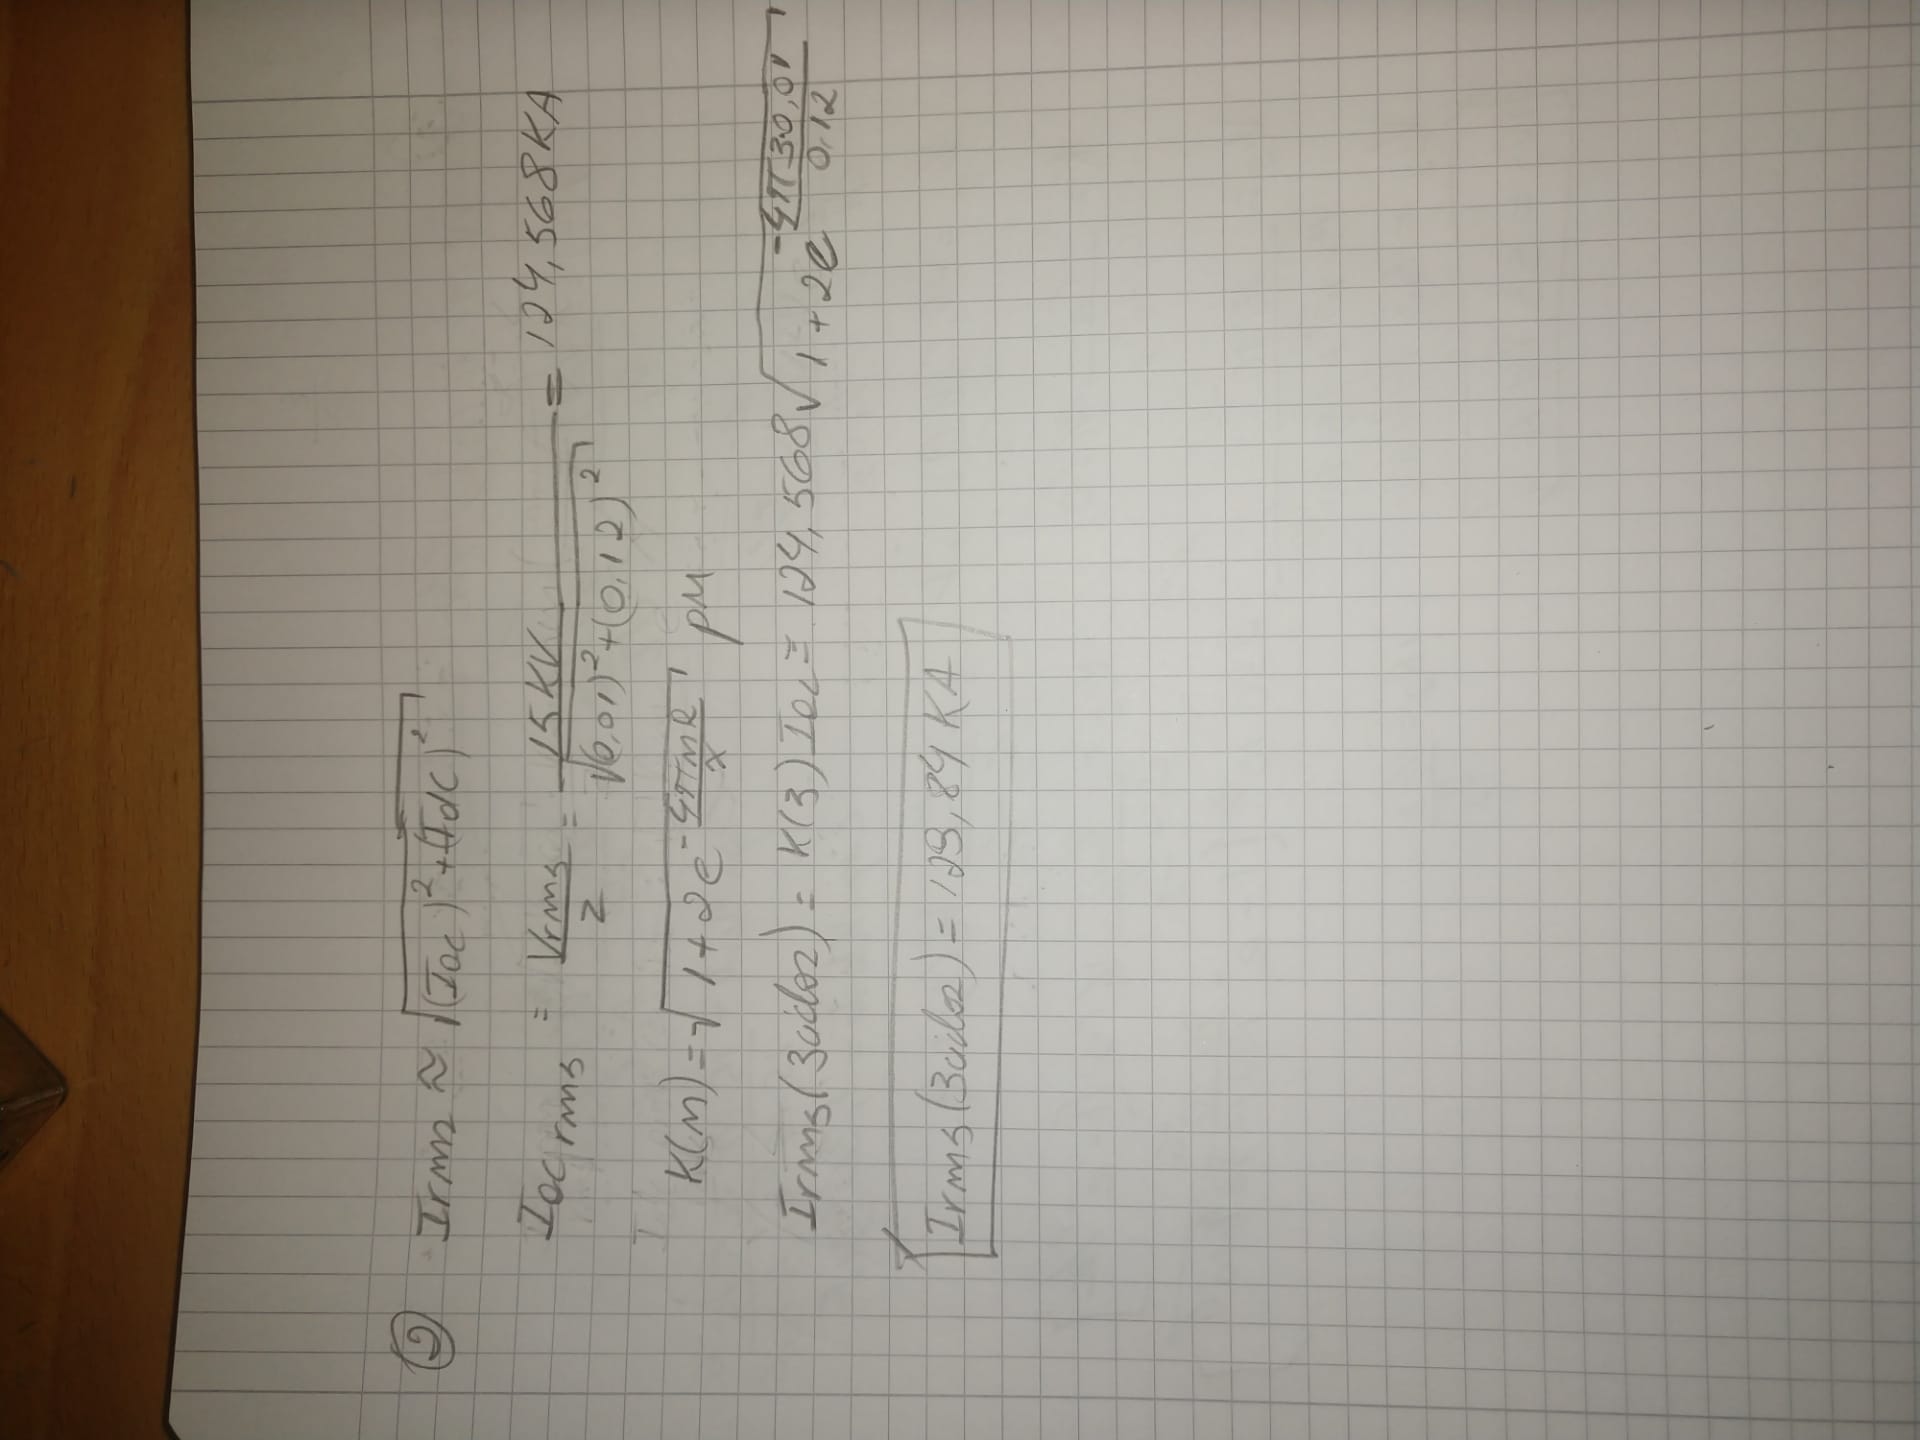 ② Irms ≈ √((Iac)² + (Idc)²)
Iac rms = Vrms / Z = 15 KV / √((0.01)² + (0.12)²) = 124,568 KA
K(n) = √(1 + 2e^(-4πnR / X)) pu
Irms (3ciclos) = K(3) Iac = 124,568 √(1 + 2e^(-4π30,01 / 0.12))
Irms (3ciclos) = 129,84 KA